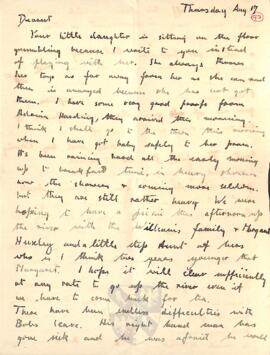 Thursday Aug 17
Dearest
Your little daughter is sitting on the floor
grumbling because I write to you instead
of playing with her. She always throws
her toys as far away from her as she can and
then is enraged because she has not got
them. I have some very good proofs from
Harding, they arrived this morning.
I think I shall go to the this morning
when I have got baby safely to her pram.
It's been raining hard all the early morning
up to breakfast time, in heavy showers
now the showers are coming more seldom
but they are still rather heavy. We were
hoping to have a picnic this afternoon up
the river with the Williams family & Margaret
Huxley and a little step Aunt of hers
who is I think two years younger than
Margaret. I hope it will clear sufficiently
at any rate to go up the river even if
we have to come back for tea.
There have been endless difficulties with
Bob's leave. His right hand man has
gone sick and he was afraid he would